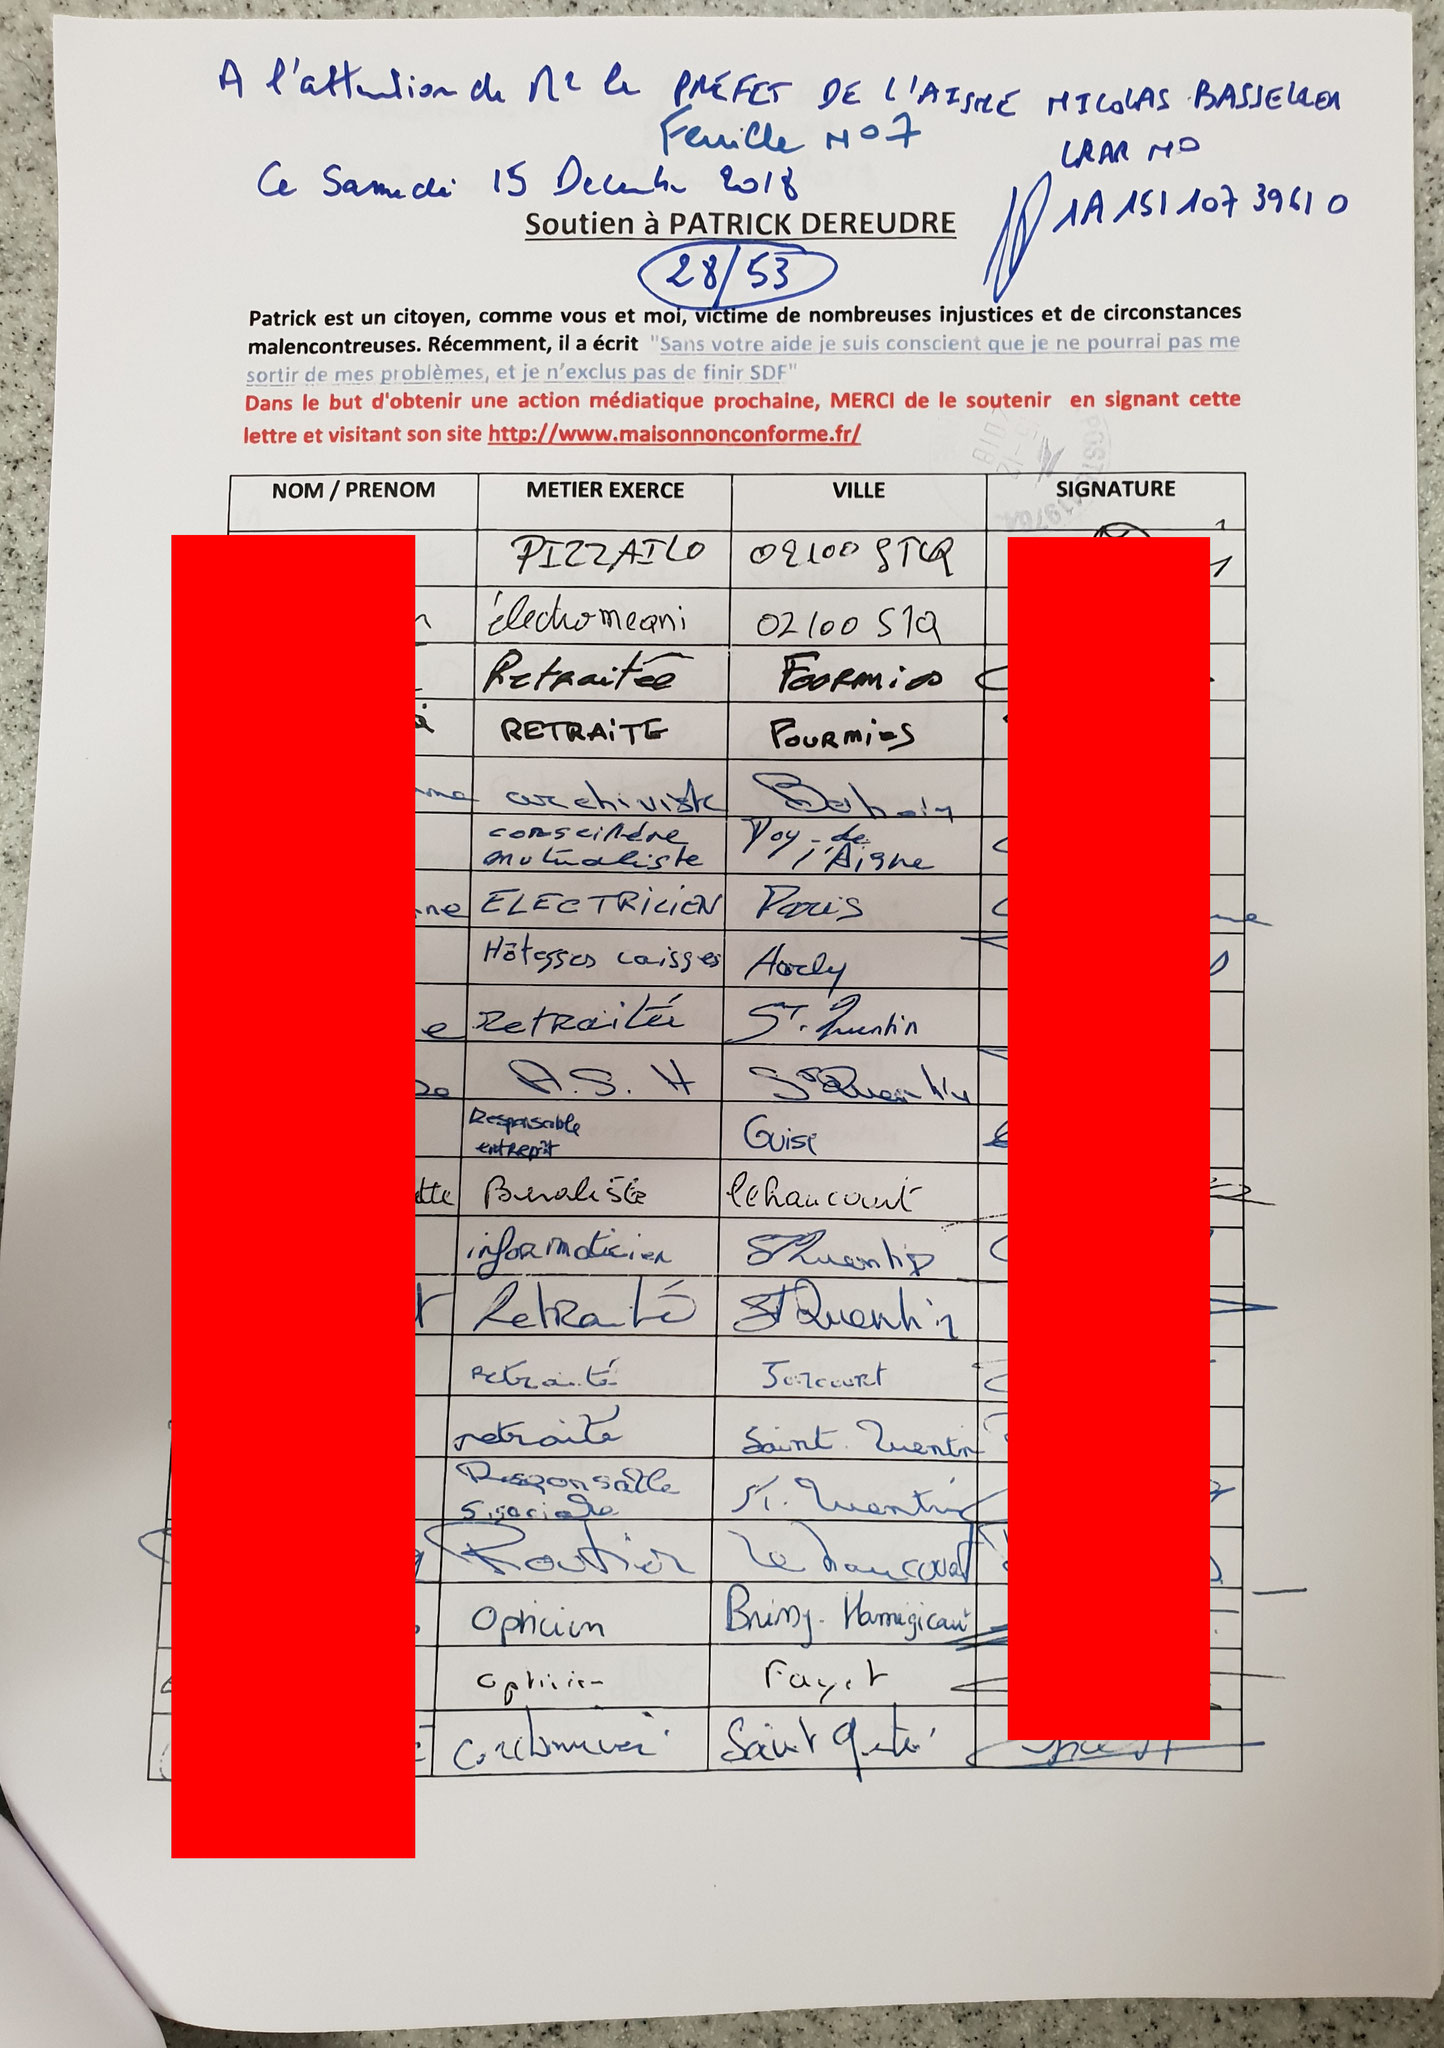 A l'attention de Mr le PREFET DE L'AISNE NICOLAS BASSELIER
Feuille NO7
LRAR NO
Ce Samedi 15 Decembre 2018
1A 151 107 3961 0
Soutien à PATRICK DEREUDRE
28/53
Patrick est un citoyen, comme vous et moi, victime de nombreuses injustices et de circonstances
malencontreuses. Récemment, il a écrit "Sans votre aide je suis conscient que je ne pourrai pas me
sortir de mes problèmes, et je n'exclus pas de finir SDF"
Dans le but d'obtenir une action médiatique prochaine, MERCI de le soutenir en signant cette
lettre et visitant son site http://www.maisonnonconforme.fr/
NOM / PRENOM METIER EXERCE VILLE SIGNATURE
PIZZAILO 02100 STQ
électromecani 02100 STQ
Retraitée Fourmies
RETRAITE FOURMIES
archiviste Bohain
conseillère mutualiste Voy-de l'Aisne
ELECTRICIEN Paris
Hôtesses caisses Harly
retraitée ST. Quentin
A.S.H St Quentin
Responsable entrepôt Guise
Buraliste lehaucourt
informaticien St Quentin
Retraité St Quentin
retraité Joncourt
retraité Saint. Quentin
Responsable St. Quentin
Routier Lehaucourt
Opticien Brissy-Hamégicourt
opticien Fayet
Saint Quentin